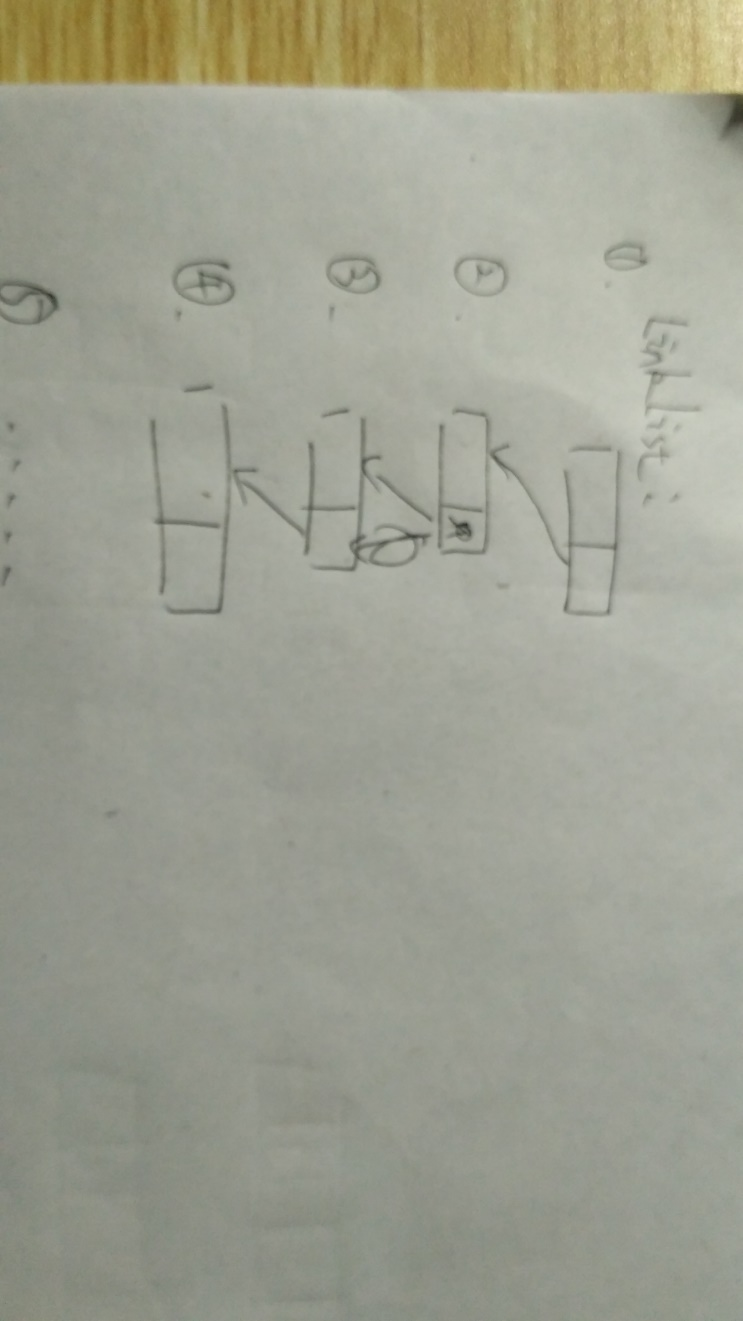 LinkList:
①.
②.
③.
④.
⑤ .....